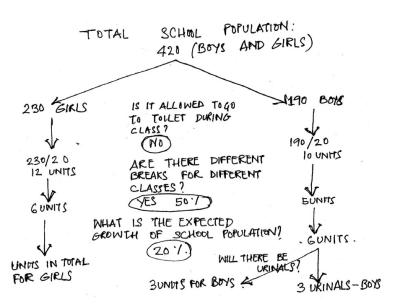 TOTAL SCHOOL POPULATION:
420 (BOYS AND GIRLS)
230 GIRLS
230/20
12 UNITS
6 UNITS
UNITS IN TOTAL
FOR GIRLS
IS IT ALLOWED TO GO
TO TOILET DURING
CLASS?
NO
ARE THERE DIFFERENT
BREAKS FOR DIFFERENT
CLASSES?
YES 50%
WHAT IS THE EXPECTED
GROWTH OF SCHOOL POPULATION?
20%
190 BOYS
190/20
10 UNITS
5 UNITS
6 UNITS
WILL THERE BE
URINALS?
3 UNITS FOR BOYS
3 URINALS-BOYS